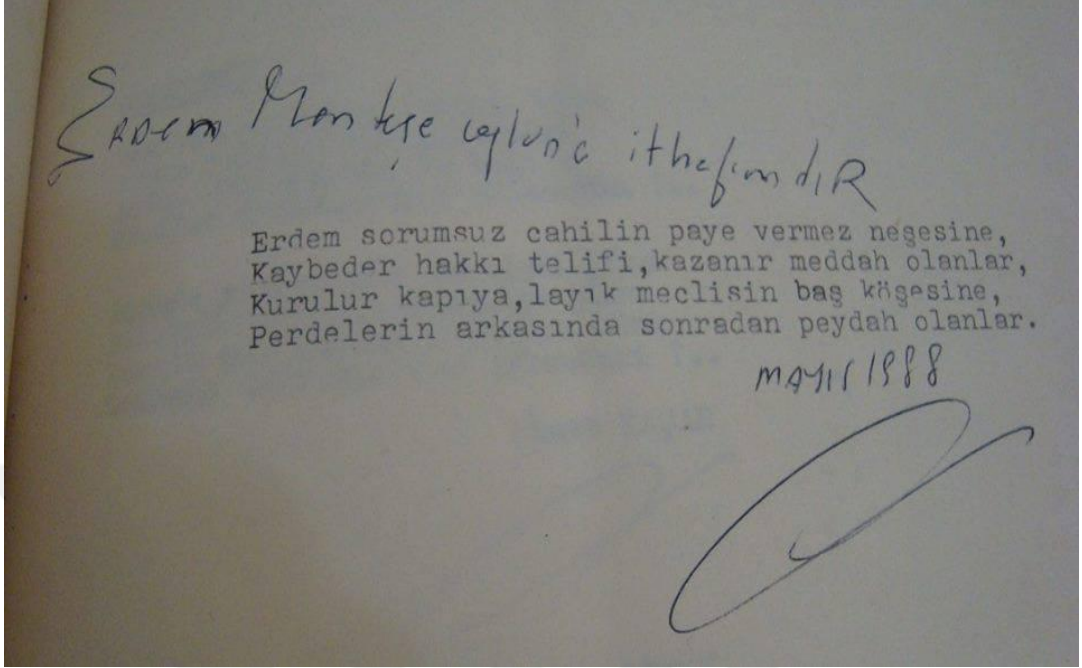 ERDEM Menteşe oğlun'a ithafımdıR
Erdem sorumsuz cahilin paye vermez neşesine,
Kaybeder hakkı telifi,kazanır meddah olanlar,
Kurulur kapıya,layık meclisin baş köşesine,
Perdelerin arkasında sonradan peydah olanlar.
MAYIS 1988